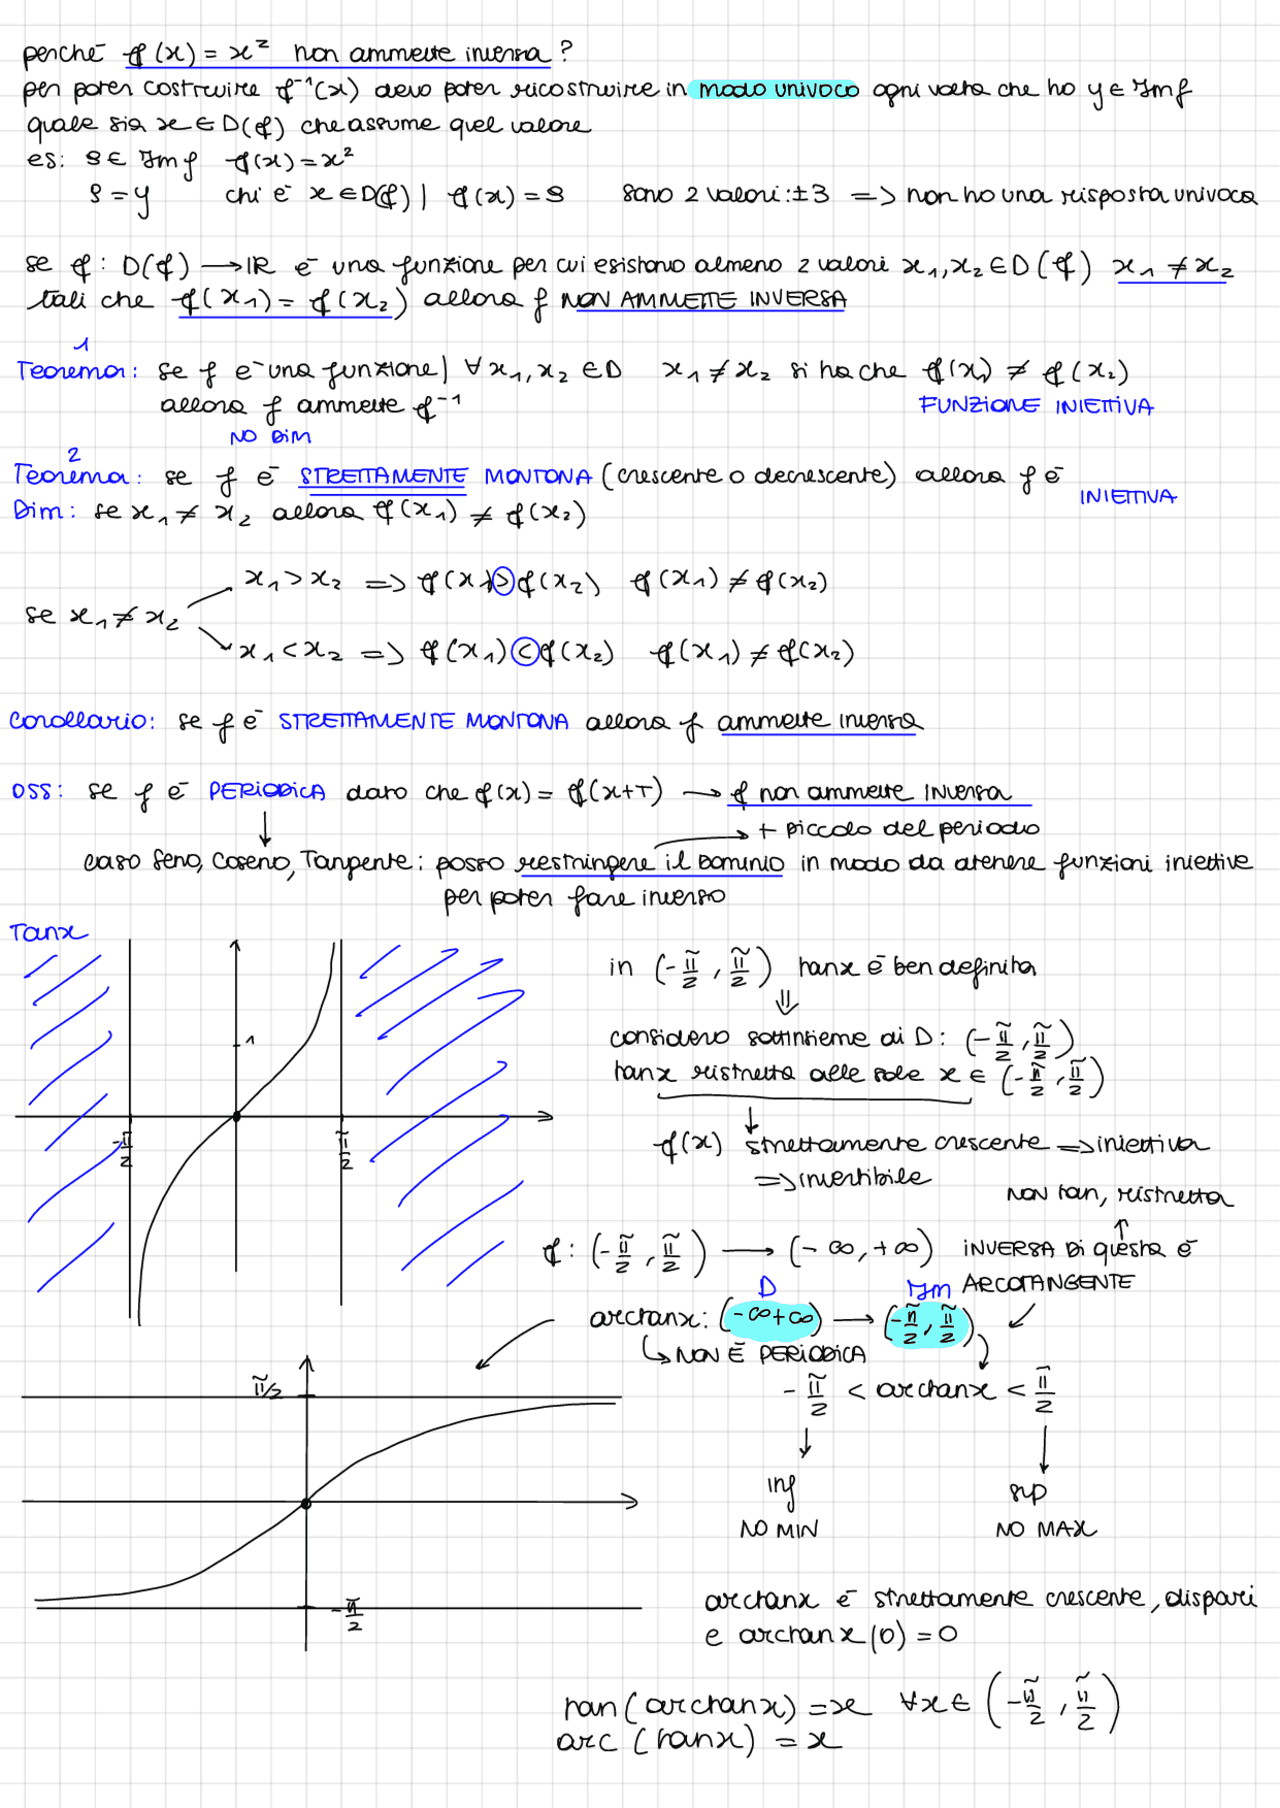 perchē f(x) = x² non ammette inversa ?
per poter costruire f⁻¹(x) devo poter ricostruire in modo univoco ogni volta che ho y ∈ Jmf
quale sia x ∈ D(f) che assume quel valore
es: 9 ∈ Jmf f(x) = x²
9 = y chi ē x ∈ D(f) | f(x) = 9 sono 2 valori: ±3 => non ho una risposta univoca
se f : D(f) → IR ē una funzione per cui esistono almeno 2 valori x₁, x₂ ∈ D(f) x₁ ≠ x₂
tali che f(x₁) = f(x₂) allora f NON AMMETTE INVERSA
1
Teorema: se f e una funzione | ∀ x₁, x₂ ∈ D x₁ ≠ x₂ si ha che f(x₁) ≠ f(x₂)
allora f ammette f⁻¹ FUNZIONE INIETTIVA
NO DIM
2
Teorema: se f ē STRETTAMENTE MONTONA (crescente o decrescente) allora f ē INIETTIVA
Dim: se x₁ ≠ x₂ allora f(x₁) ≠ f(x₂)
x₁ > x₂ => f(x₁) > f(x₂) f(x₁) ≠ f(x₂)
se x₁ ≠ x₂
x₁ < x₂ => f(x₁) < f(x₂) f(x₁) ≠ f(x₂)
corollario: se f ē STRETTAMENTE MONTONA allora f ammette inversa
OSS: se f ē PERIODICA dato che f(x) = f(x+T) → f non ammette INversa
↓ → + piccolo del periodo
caso Seno, Coseno, Tangente: posso restringere il Dominio in modo da otenere funzioni iniettive
per poter fare inverso
Tanx
in (-π/2, π/2) tanx ē ben definita
⇓
1
considero sottinsieme di D: (-π/2, π/2)
tanx ristretta alle sole x ∈ (-π/2, π/2)
↓
-π/2 π/2
f(x) strettamente crescente => iniettiva
=> invertibile
NON tan, ristretta
↑
f : (-π/2, π/2) → (-∞, +∞) INVERSA Di questa ē
D Jm ARCOTANGENTE
arctanx: (-∞+∞) → (-π/2, π/2)
↳ NON Ē PERIODICA
π/2
-π/2 < arctanx < π/2
↓ ↓
inf sup
NO MIN NO MAX
-π/2
arctanx ē strettamente crescente, dispari
e arctanx(0) = 0
tan(arctanx) = x ∀x ∈ (-π/2, π/2)
arc (tanx) = x